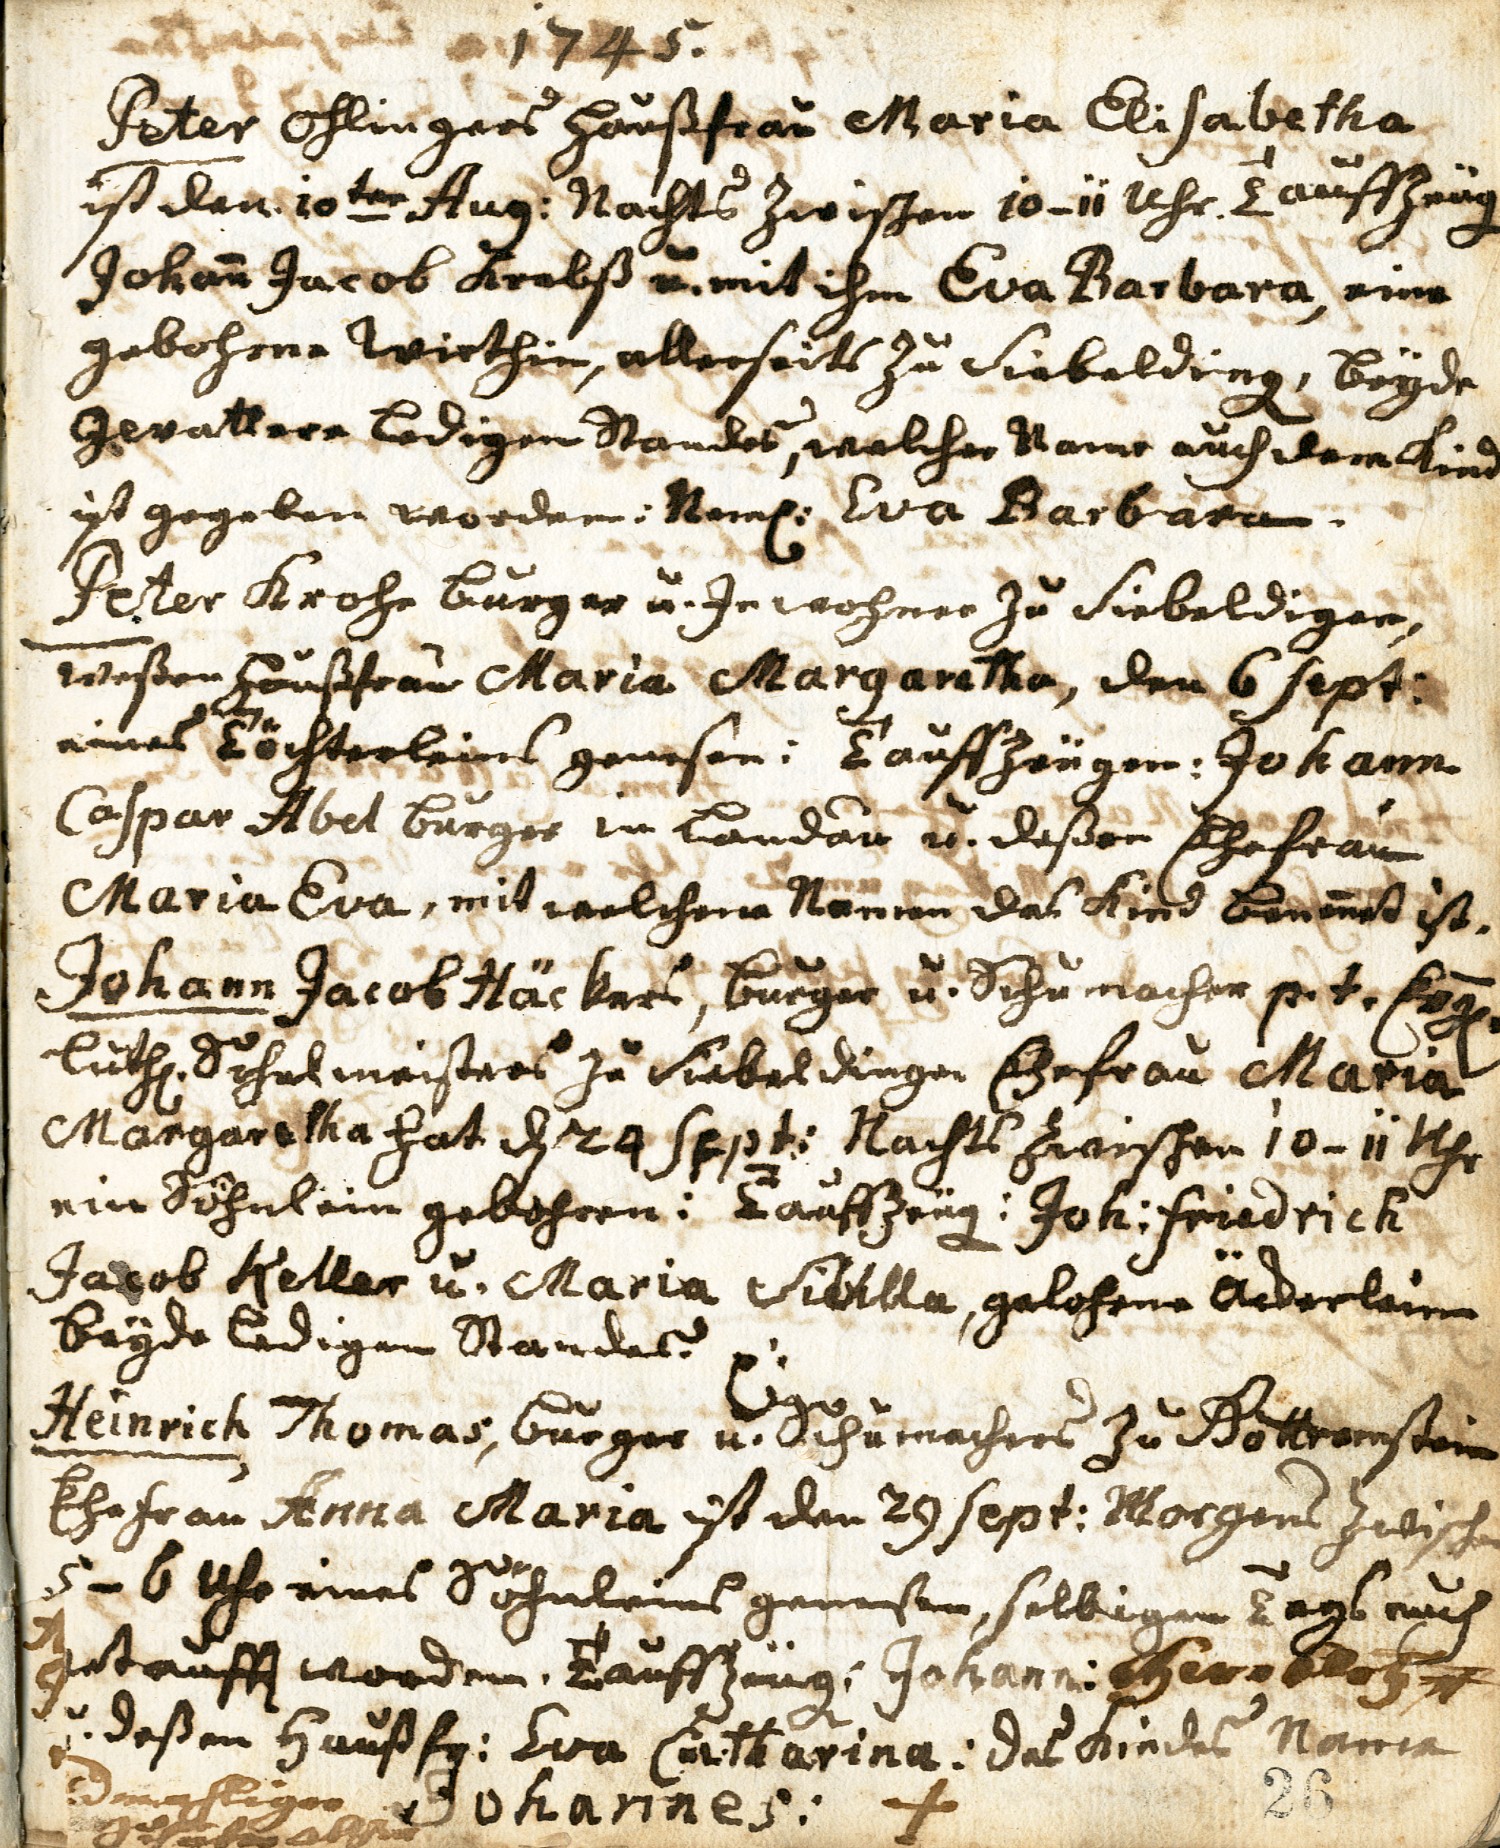 1745.
Peter Ohlingers Haußfrau Maria Elisabetha
ist den 10ten Aug: Nachts zwischen 10-11 Uhr. Tauffzeug
Johañ Jacob Krebß u. mit ihm Eva Barbara, eine
gebohrne Wirthin, allerseits zu Siebelding, beyde
Gevattere ledigen Standes, welcher Name auch dem Kind
ist gegeben worden: Neml: Eva Barbara.
Peter Krohe burger u. Inwohner zu Siebeldigen,
weßen Haußfrau Maria Margaretha, den 6 sept:
eines Töchterleins genesen: Tauffzeugen: Johann
Caspar Abel burger in Landau u. deßen Ehefrau
Maria Eva, mit welchem Namen das Kind beneñet ist.
Johann Jacob Häckers, burger u. Schumacher p. t. Evg.
Luth. Schulmeisters zu Siebeldingen Ehefrau Maria
Margaretha hat d 24 Sept: Nachts zwischen 10-11 Uhr
ein Söhnlein gebohren: Tauffzeug: Joh: friedrich
Jacob Keller u. Maria Sibilla,
beyde ledigen Standes.
Heinrich Thomas, burger u. Schumachers zu
Ehefrau Anna Maria ist den 29 sept: Morgens zwischen
5-6 Uhr eines Söhnleins genesen, selbigen Tags auch
getaufft worden. Tauffzeug: Johann:
u. deßen Haußfr: Eva Catharina: des Kindes Name
Johannes: +
26